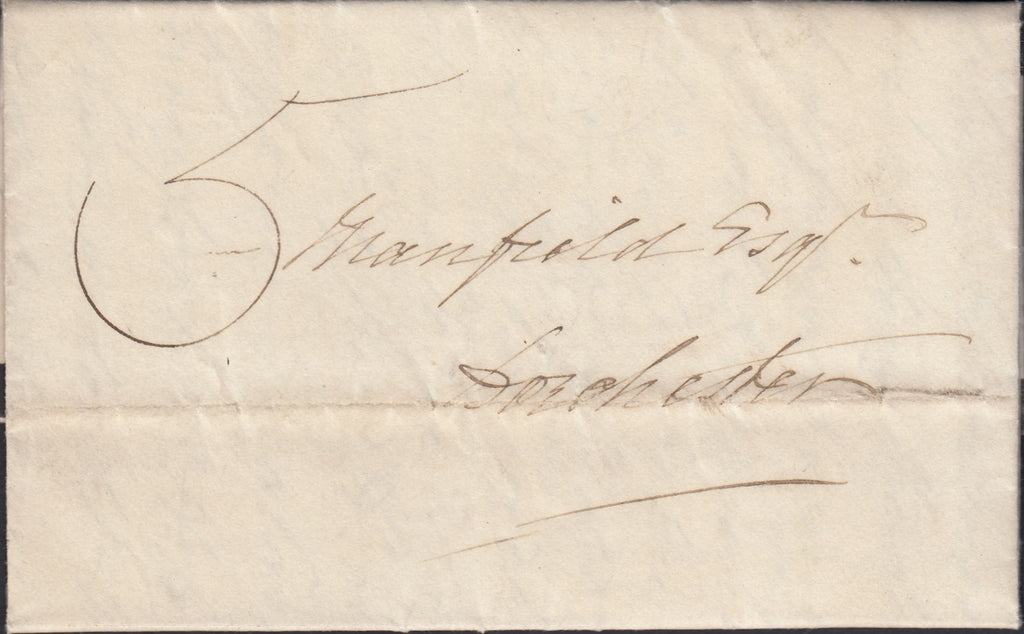 5
Manfield Esqr.
Dorchester